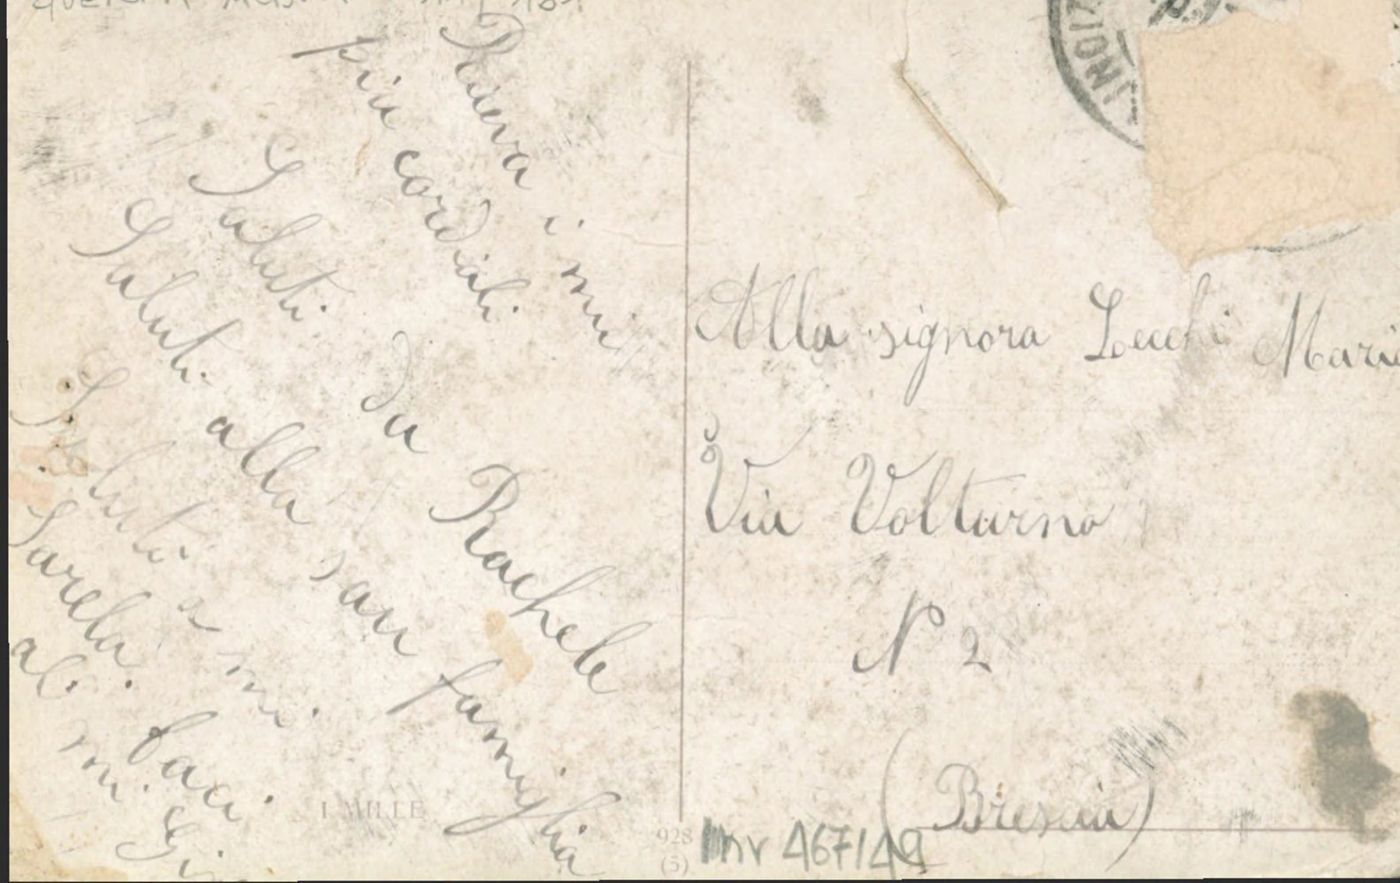 Riceva i miei
più cordiali
Saluti da Rachele
Saluti alla sau famiglia
Saluti a mi
Sarela. baci
al mi Gi
I MILLE
928
(5)
ZIONI
Alla signora Lucchi Maria
Via Volturno
N 2
(Brescia)
Inv 467/49